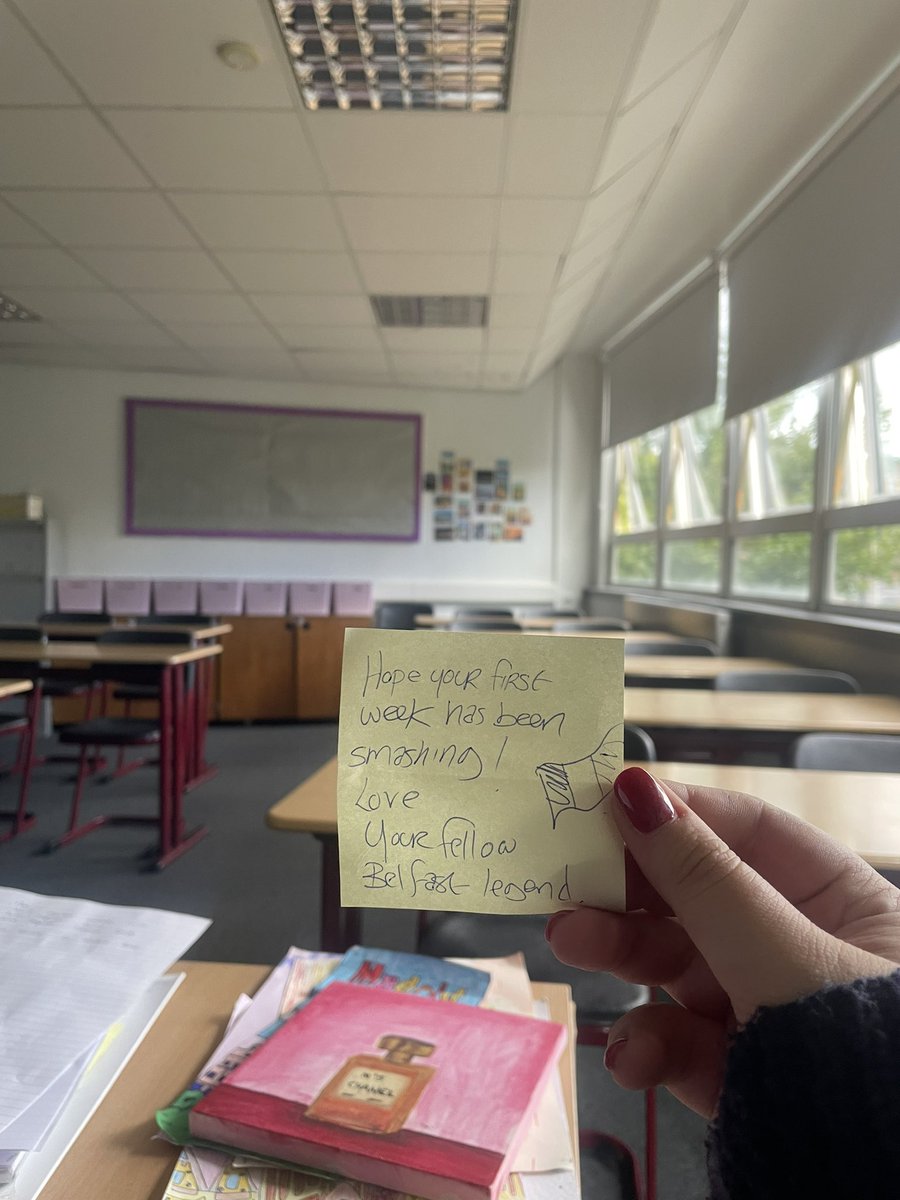 Hope your first
week has been
smashing!
Love
Your fellow
Belfast legend.
N°5
CHANEL